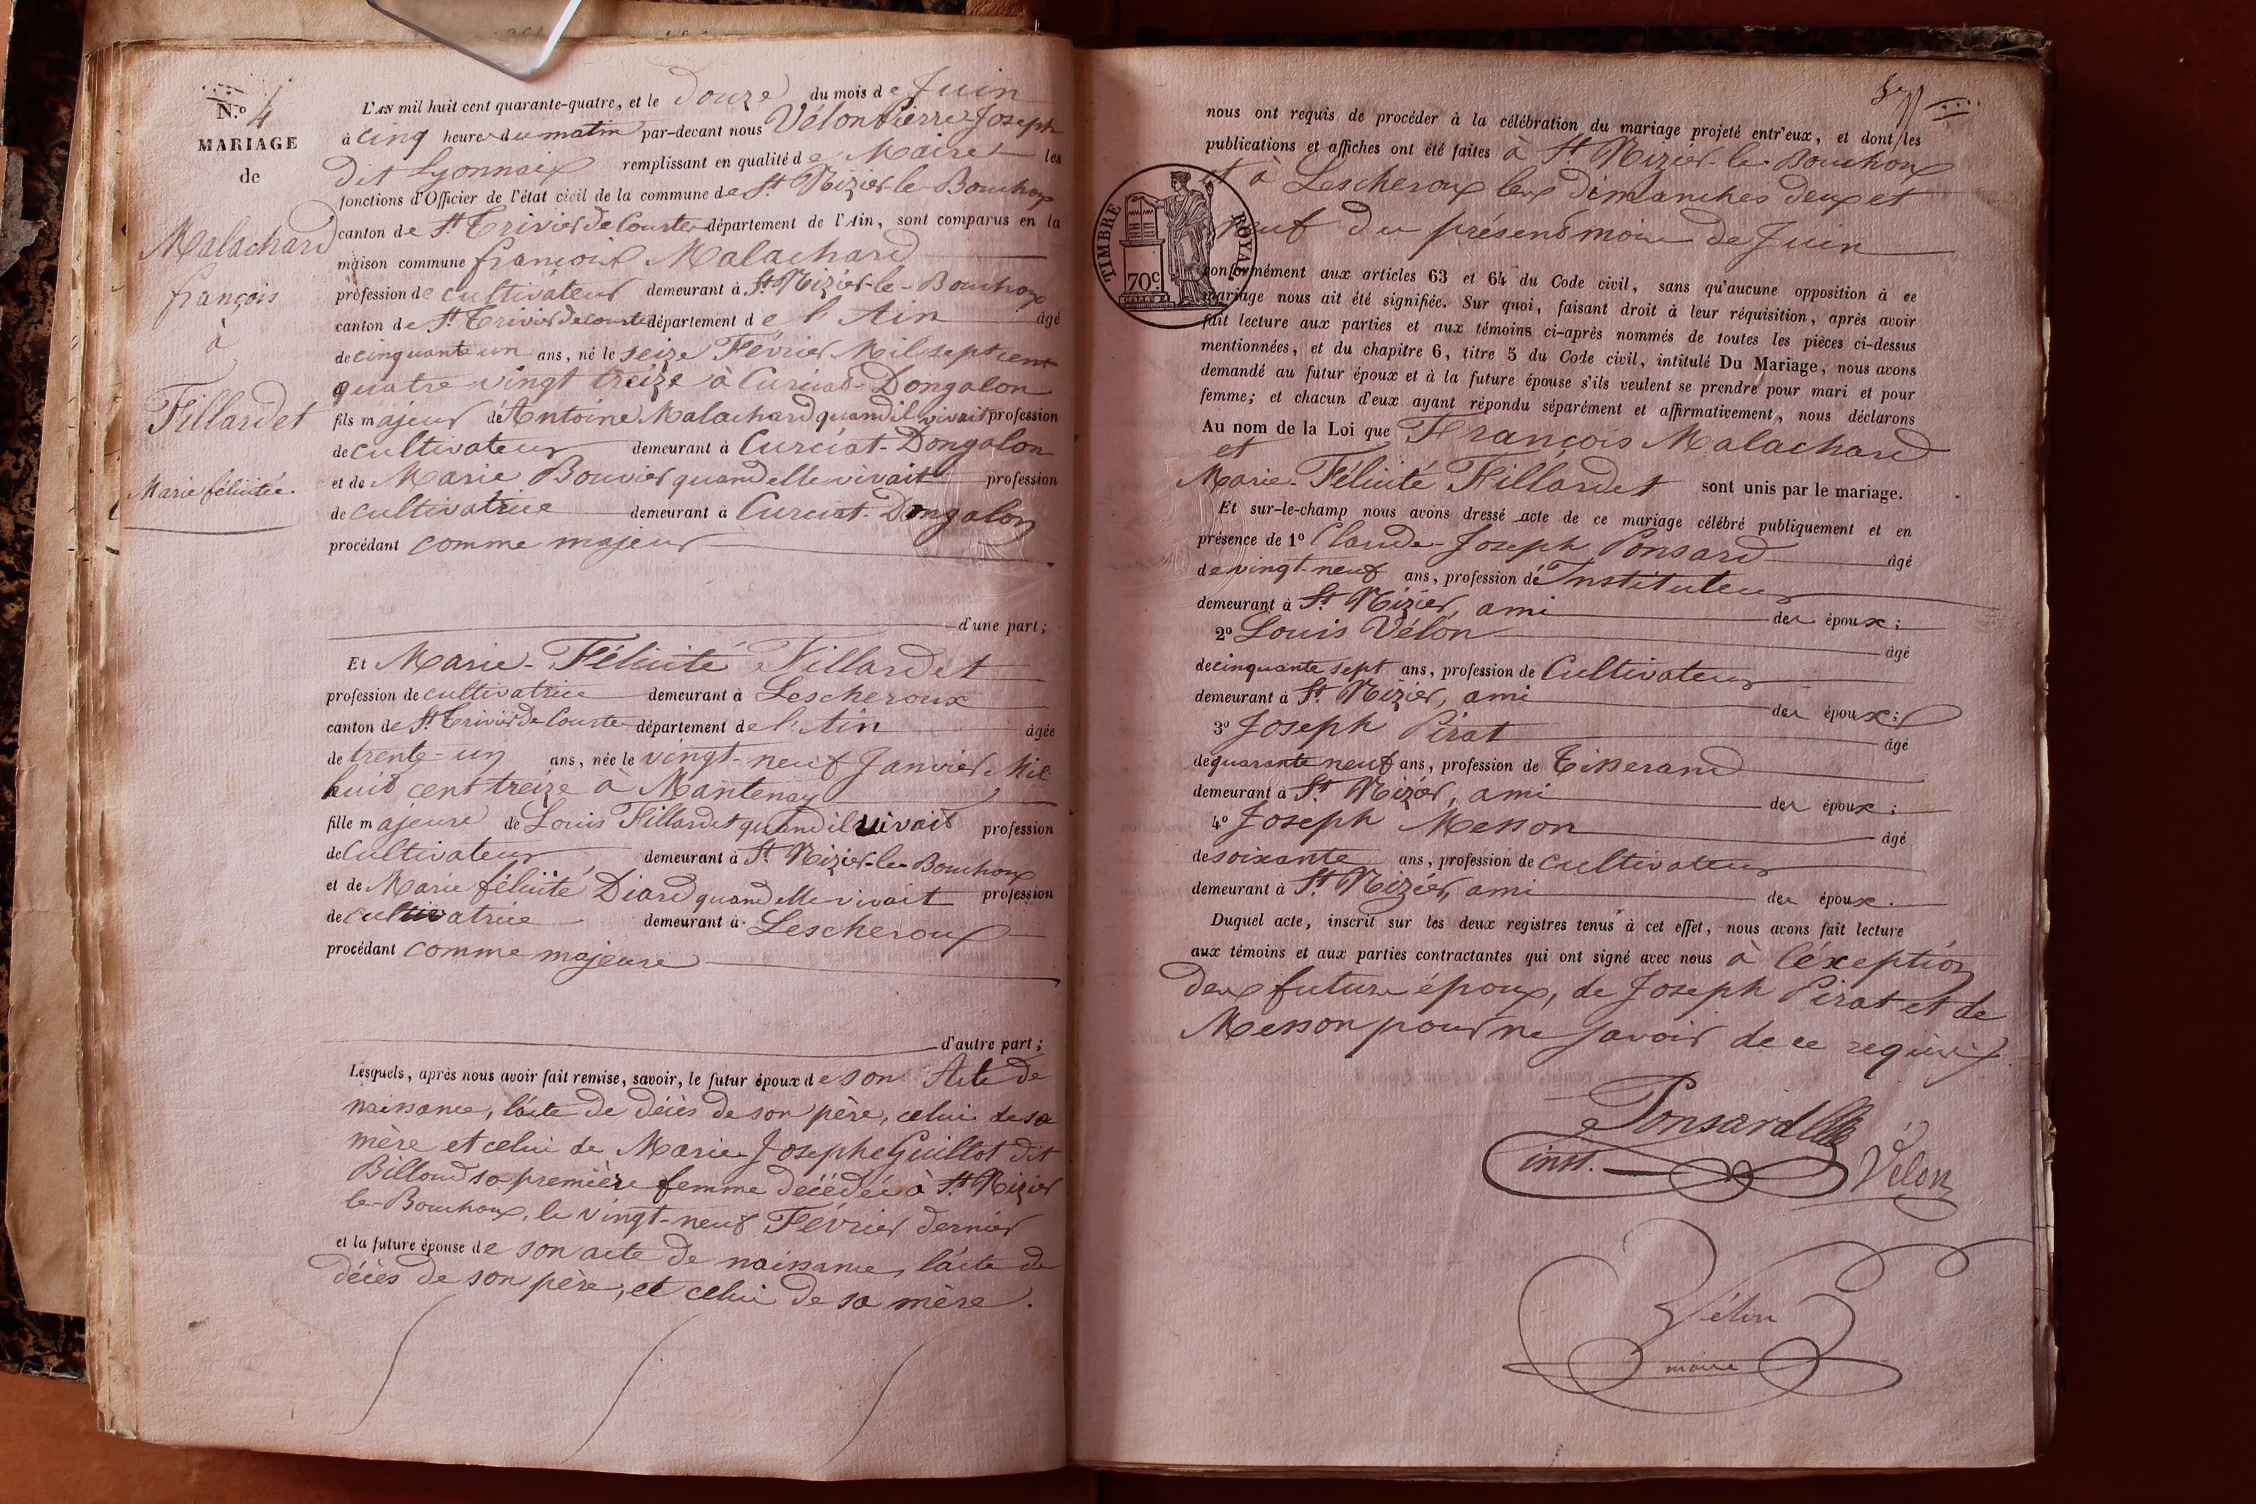 N.º 4
MARIAGE
de
Malachard
françois
à
Fillardet
Marie félicitée.
L'AN mil huit cent quarante-quatre, et le douze du mois de Juin
à cinq heures du matin par-devant nous Vélon Pierre Joseph
dit Lyonnais remplissant en qualité de Maire les
fonctions d'Officier de l'état civil de la commune de St Nizier-le-Bouchoux
canton de St Trivier de Courtes département de l'Ain, sont comparus en la
maison commune françois Malachard
profession de cultivateur demeurant à St Nizier-le-Bouchoux
canton de St Trivier de courtes département de l'Ain âgé
de cinquante un ans, né le seize Février Mil sept cent
quatre-vingt treize à Curciat-Dongalon
fils majeur de Antoine Malachard quand il vivait profession
de cultivateur demeurant à Curciat-Dongalon
et de Marie Bouvier quand elle vivait profession
de cultivatrice demeurant à Curciat-Dongalon
procédant comme majeur
d'une part;
Et Marie-Félicité Fillardet
profession de cultivatrice demeurant à Lescheroux
canton de St Trivier de Courtes département de l'Ain âgée
de trente-un ans, née le vingt-neuf Janvier Mil
huit cent treize à Mantenay
fille majeure de Louis Fillardet quand il vivait profession
de Cultivateur demeurant à St Nizier-le-Bouchoux
et de Marie félicité Diard quand elle vivait profession
de cultivatrice demeurant à Lescheroux
procédant comme majeure
d'autre part;
Lesquels, après nous avoir fait remise, savoir, le futur époux de son Acte de
naissance, l'acte de décès de son père, celui de sa
mère et celui de Marie Josephe Guillot dit
Billoud sa première femme décédée à St Nizier
le-Bouchoux, le vingt-neuf Février dernier
et la future épouse de son acte de naissance, l'acte de
décès de son père, et celui de sa mère.
nous ont requis de procéder à la célébration du mariage projeté entr'eux, et dont les
publications et affiches ont été faites à St Nizier-le-Bouchoux
et à Lescheroux les dimanches deux et
neuf du présent mois de Juin
TIMBRE ROYAL
70c
conformément aux articles 63 et 64 du Code civil, sans qu'aucune opposition à ce
mariage nous ait été signifiée. Sur quoi, faisant droit à leur réquisition, après avoir
fait lecture aux parties et aux témoins ci-après nommés de toutes les pièces ci-dessus
mentionnées, et du chapitre 6, titre 5 du Code civil, intitulé Du Mariage, nous avons
demandé au futur époux et à la future épouse s'ils veulent se prendre pour mari et pour
femme; et chacun d'eux ayant répondu séparément et affirmativement, nous déclarons
Au nom de la Loi que François Malachard
et
Marie-Félicité Fillardet sont unis par le mariage.
Et sur-le-champ nous avons dressé acte de ce mariage célébré publiquement et en
présence de 1º Claude-Joseph Ponsard âgé
de vingt-neuf ans, profession de Instituteur
demeurant à St Nizier, ami des époux;
2º Louis Vélon âgé
de cinquante sept ans, profession de Cultivateur
demeurant à St Nizier, ami des époux;
3º Joseph Pirat âgé
de quarante neuf ans, profession de Tisserand
demeurant à St Nizier, ami des époux;
4º Joseph Messon âgé
de soixante ans, profession de cultivateur
demeurant à St Nizier, ami des époux.
Duquel acte, inscrit sur les deux registres tenus à cet effet, nous avons fait lecture
aux témoins et aux parties contractantes qui ont signé avec nous à l'éxeption
des future époux, de Joseph Pirat et de
Messon pour ne savoir de ce requis.
Ponsard
inst.
Vélon
Vélon
maire